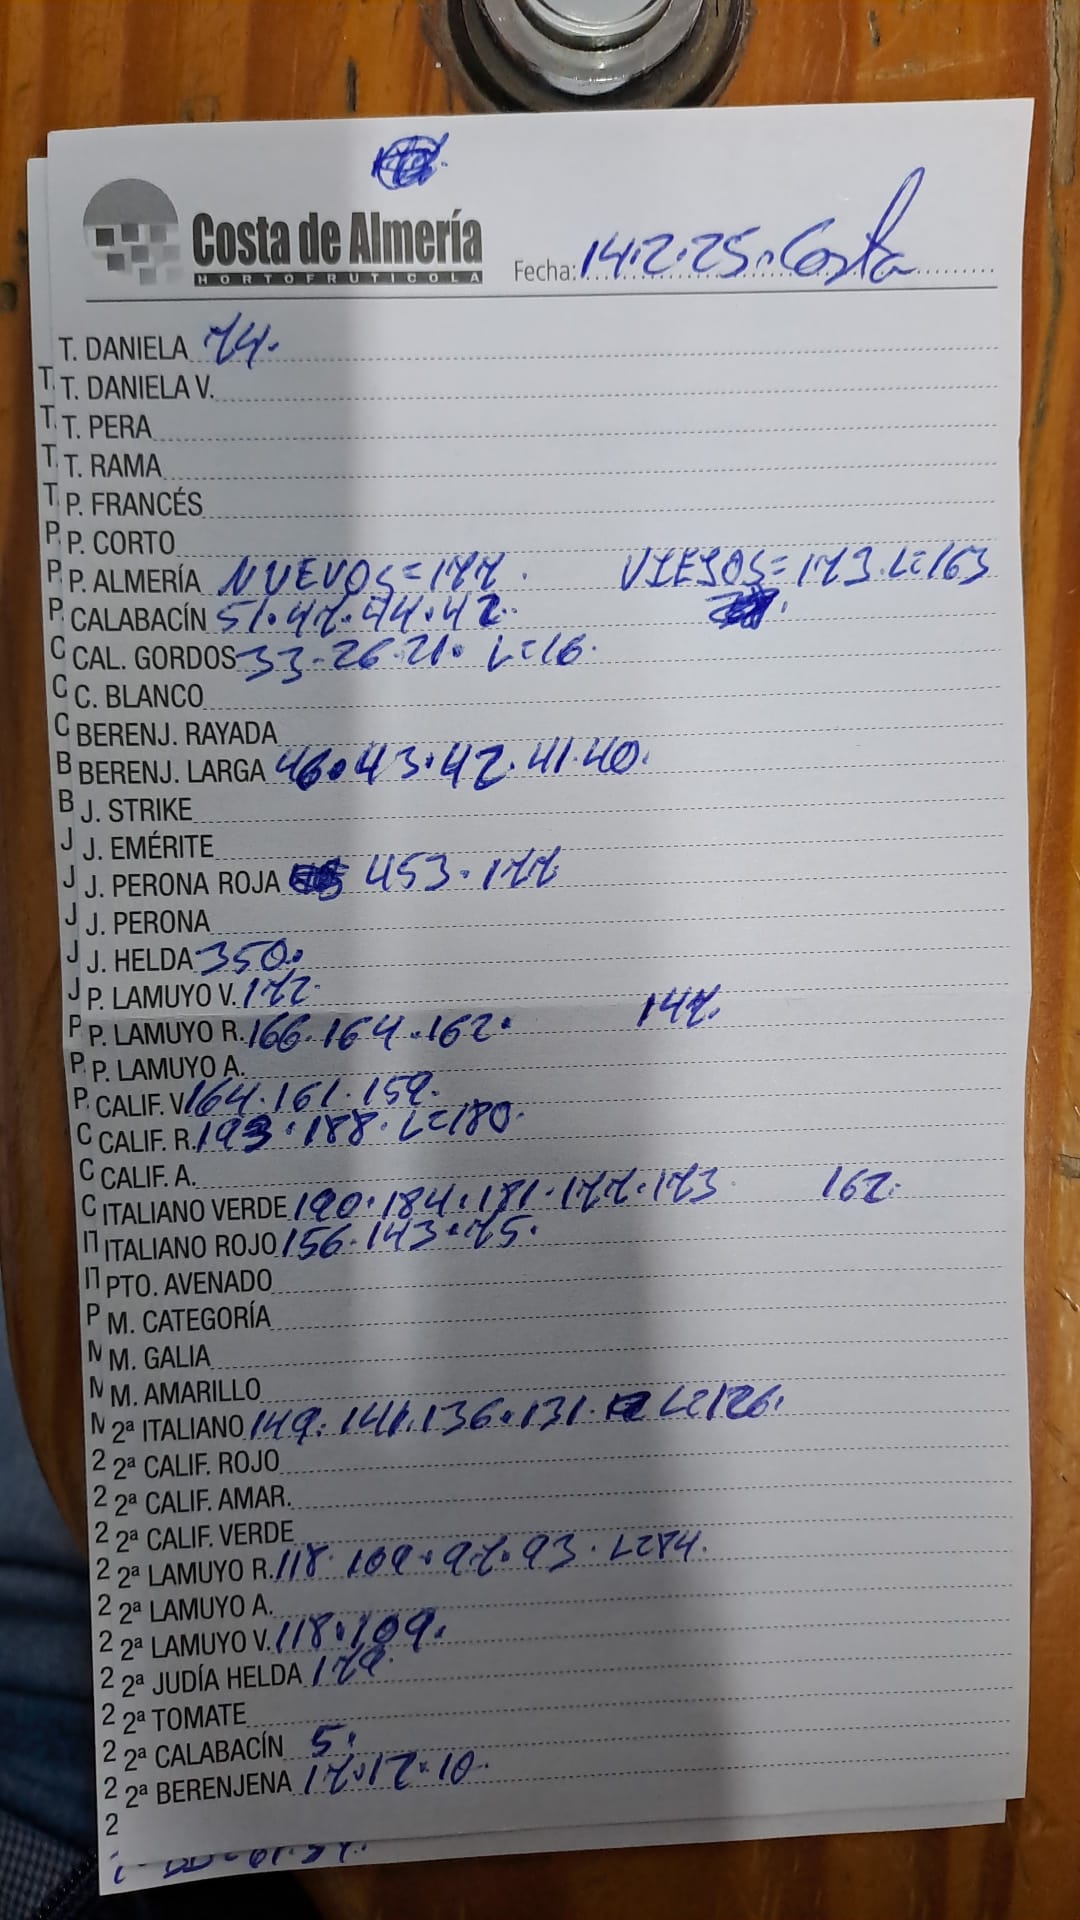 Costa de Almería
HORTOFRUTICOLA
Fecha: 14.2.25. Costa
T. DANIELA 74.
T. DANIELA V.
T. PERA
T. RAMA
P. FRANCÉS
P. CORTO
P. ALMERÍA NUEVOS=177. VIEJOS=173. L=163
CALABACÍN 51.47.44.42.
CAL. GORDOS 33-26.21. L=16.
C. BLANCO
BERENJ. RAYADA
BERENJ. LARGA 46.43.42.41.40.
J. STRIKE
J. EMÉRITE
J. PERONA ROJA 453.177.
J. PERONA
J. HELDA 350.
P. LAMUYO V. 172.
P. LAMUYO R. 166.164.162. 147.
P. LAMUYO A.
CALIF. V. 164.161.159.
CALIF. R. 193.188. L=180.
CALIF. A.
ITALIANO VERDE 190.184.181.177.173 162.
ITALIANO ROJO 156.143.75.
PTO. AVENADO
M. CATEGORÍA
M. GALIA
M. AMARILLO
2ª ITALIANO 149.141.136.131. L=126.
2ª CALIF. ROJO
2ª CALIF. AMAR.
2ª CALIF. VERDE
2ª LAMUYO R. 118.109.97.93. L=74.
2ª LAMUYO A.
2ª LAMUYO V. 118.109.
2ª JUDÍA HELDA 179.
2ª TOMATE
2ª CALABACÍN 5.
2ª BERENJENA 17.12.10.